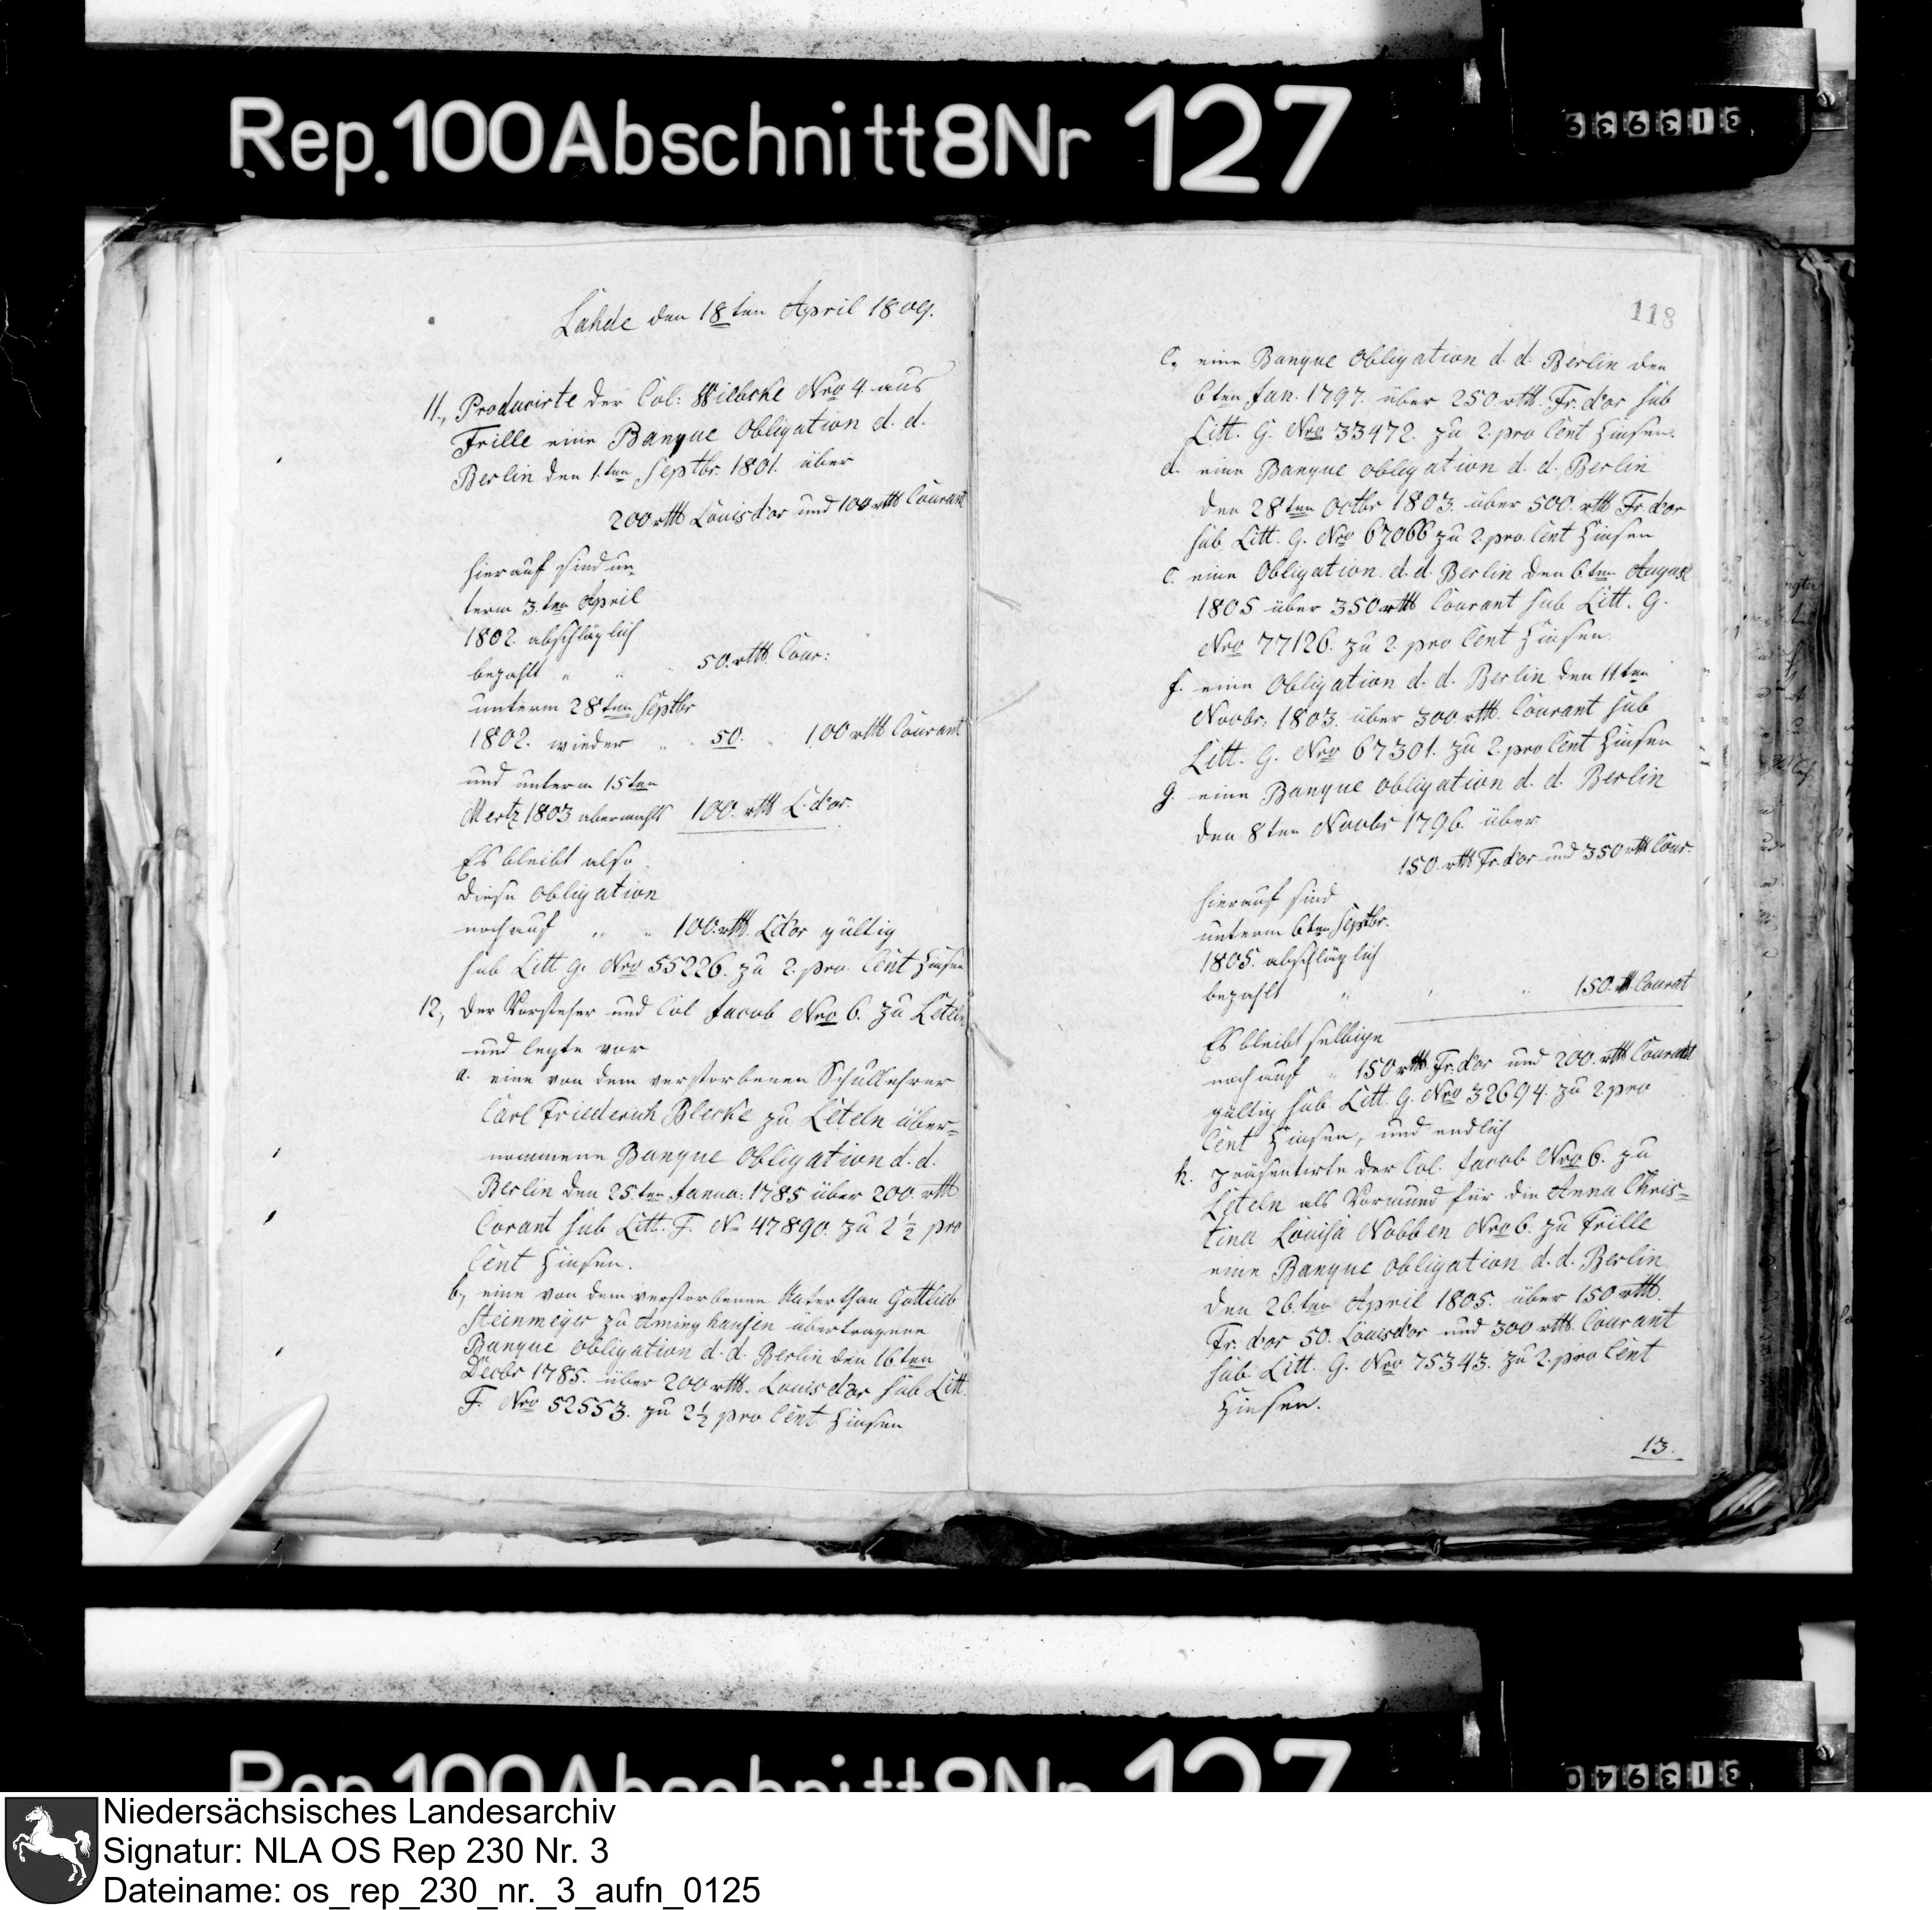 Rep. 100 Abschnitt 8 Nr 127
313939
Lahde den 18ten April 1809.
11., Producirte der Col: Wilbcke Nro 4 aus
Frille eine Banque Obligation d. d.
Berlin den 1.ten Septbr. 1801. über
200 rthl Louisd'or und 100 rthl Courant
hierauf sind un-
term 3.ten April
1802 abschläglich
bezahlt " " 50. rthl. Cour:
unterm 28ten Septbr
1802. wieder " 50. 100 rthl Courant
und unterm 15ten
Mertz 1803 abermahls 100. rthl L. d'or.
Es bleibt also
diese Obligation
noch auf " " 100. rthl. Ld'or gültig
sub Litt. G. Nro 55226. zu 2. pro Cent Zinsen
12., der Vorsteher und Col Jacob Nro 6. zu Leteln
und legte vor
a. eine von dem verstorbenen Schullehrer
Carl Friederich Blecke zu Leteln über-
nommene Banque Obligation d. d.
Berlin den 25.ten Janua: 1785 über 200 rthl
Corant sub Litt. F. No 47890. zu 2 1/2 pro
Cent Zinsen.
b., eine von dem verstorbenen Gottlieb
Steinmeyer zu Aminghausen übertragene
Banque Obligation d. d. Berlin den 16ten
Decbr 1785. über 200 rthl. Louisd'or sub Litt.
F. Nro 52553. zu 2 1/2 pro Cent Zinsen
118
c., eine Banque Obligation d. d. Berlin den
6ten Jan. 1797. über 250. rthl. Fr. d'or sub
Litt. G. Nro 33472. zu 2. pro Cent Zinsen.
d. eine Banque Obligation d. d. Berlin
den 28ten Octbr 1803. über 500. rthl Fr d'or
sub Litt. G. Nro 67066 zu 2. pro Cent Zinsen
e. eine Obligation d. d. Berlin den 6ten August
1805 über 350 rthl Courant sub Litt. G.
Nro 77126. zu 2. pro Cent Zinsen.
f. eine Obligation d. d. Berlin den 11ten
Novbr. 1803. über 300 rthl. Courant sub
Litt. G. Nro 67301. zu 2. pro Cent Zinsen
g. eine Banque Obligation d. d. Berlin
den 8ten Novbr 1796. über
150. rthl Fr. d'or und 350 rthl Cour.
hierauf sind
unterm 6ten Septbr.
1805. abschläglich
bezahlt " " " 150. rthl. Courat
Es bleibt selbige
noch auf " 150 rthl Fr. d'or und 200. rthl Courant
gültig sub Litt. G. Nro 32694. zu 2. pro
Cent Zinsen, und endlich
h. präsentirte der Col. Jacob Nro 6. zu
Leteln als Vormund für die Anna Chris-
tina Louisa Nobben Nro 6. zu Frille
eine Banque Obligation d. d. Berlin
den 26.ten April 1805. über 150 rthl.
Fr. d'or 50. Louisd'or und 300 rthl. Courant
sub. Litt. G. Nro 75343. zu 2. pro Cent
Zinsen.
13.
Rep. 100 Abschnitt 8 Nr 127
313940
Niedersächsisches Landesarchiv
Signatur: NLA OS Rep 230 Nr. 3
Dateiname: os_rep_230_nr._3_aufn_0125